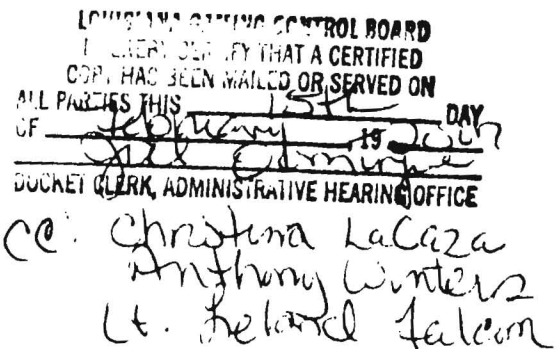 LOUISIANA GAMING CONTROL BOARD
I HEREBY CERTIFY THAT A CERTIFIED
COPY HAS BEEN MAILED OR SERVED ON
ALL PARTIES THIS 15th DAY
OF February , 19
DOCKET CLERK, ADMINISTRATIVE HEARING OFFICE
cc: Christina LaCaza
Anthony Winters
Lt. Ireland Falcon